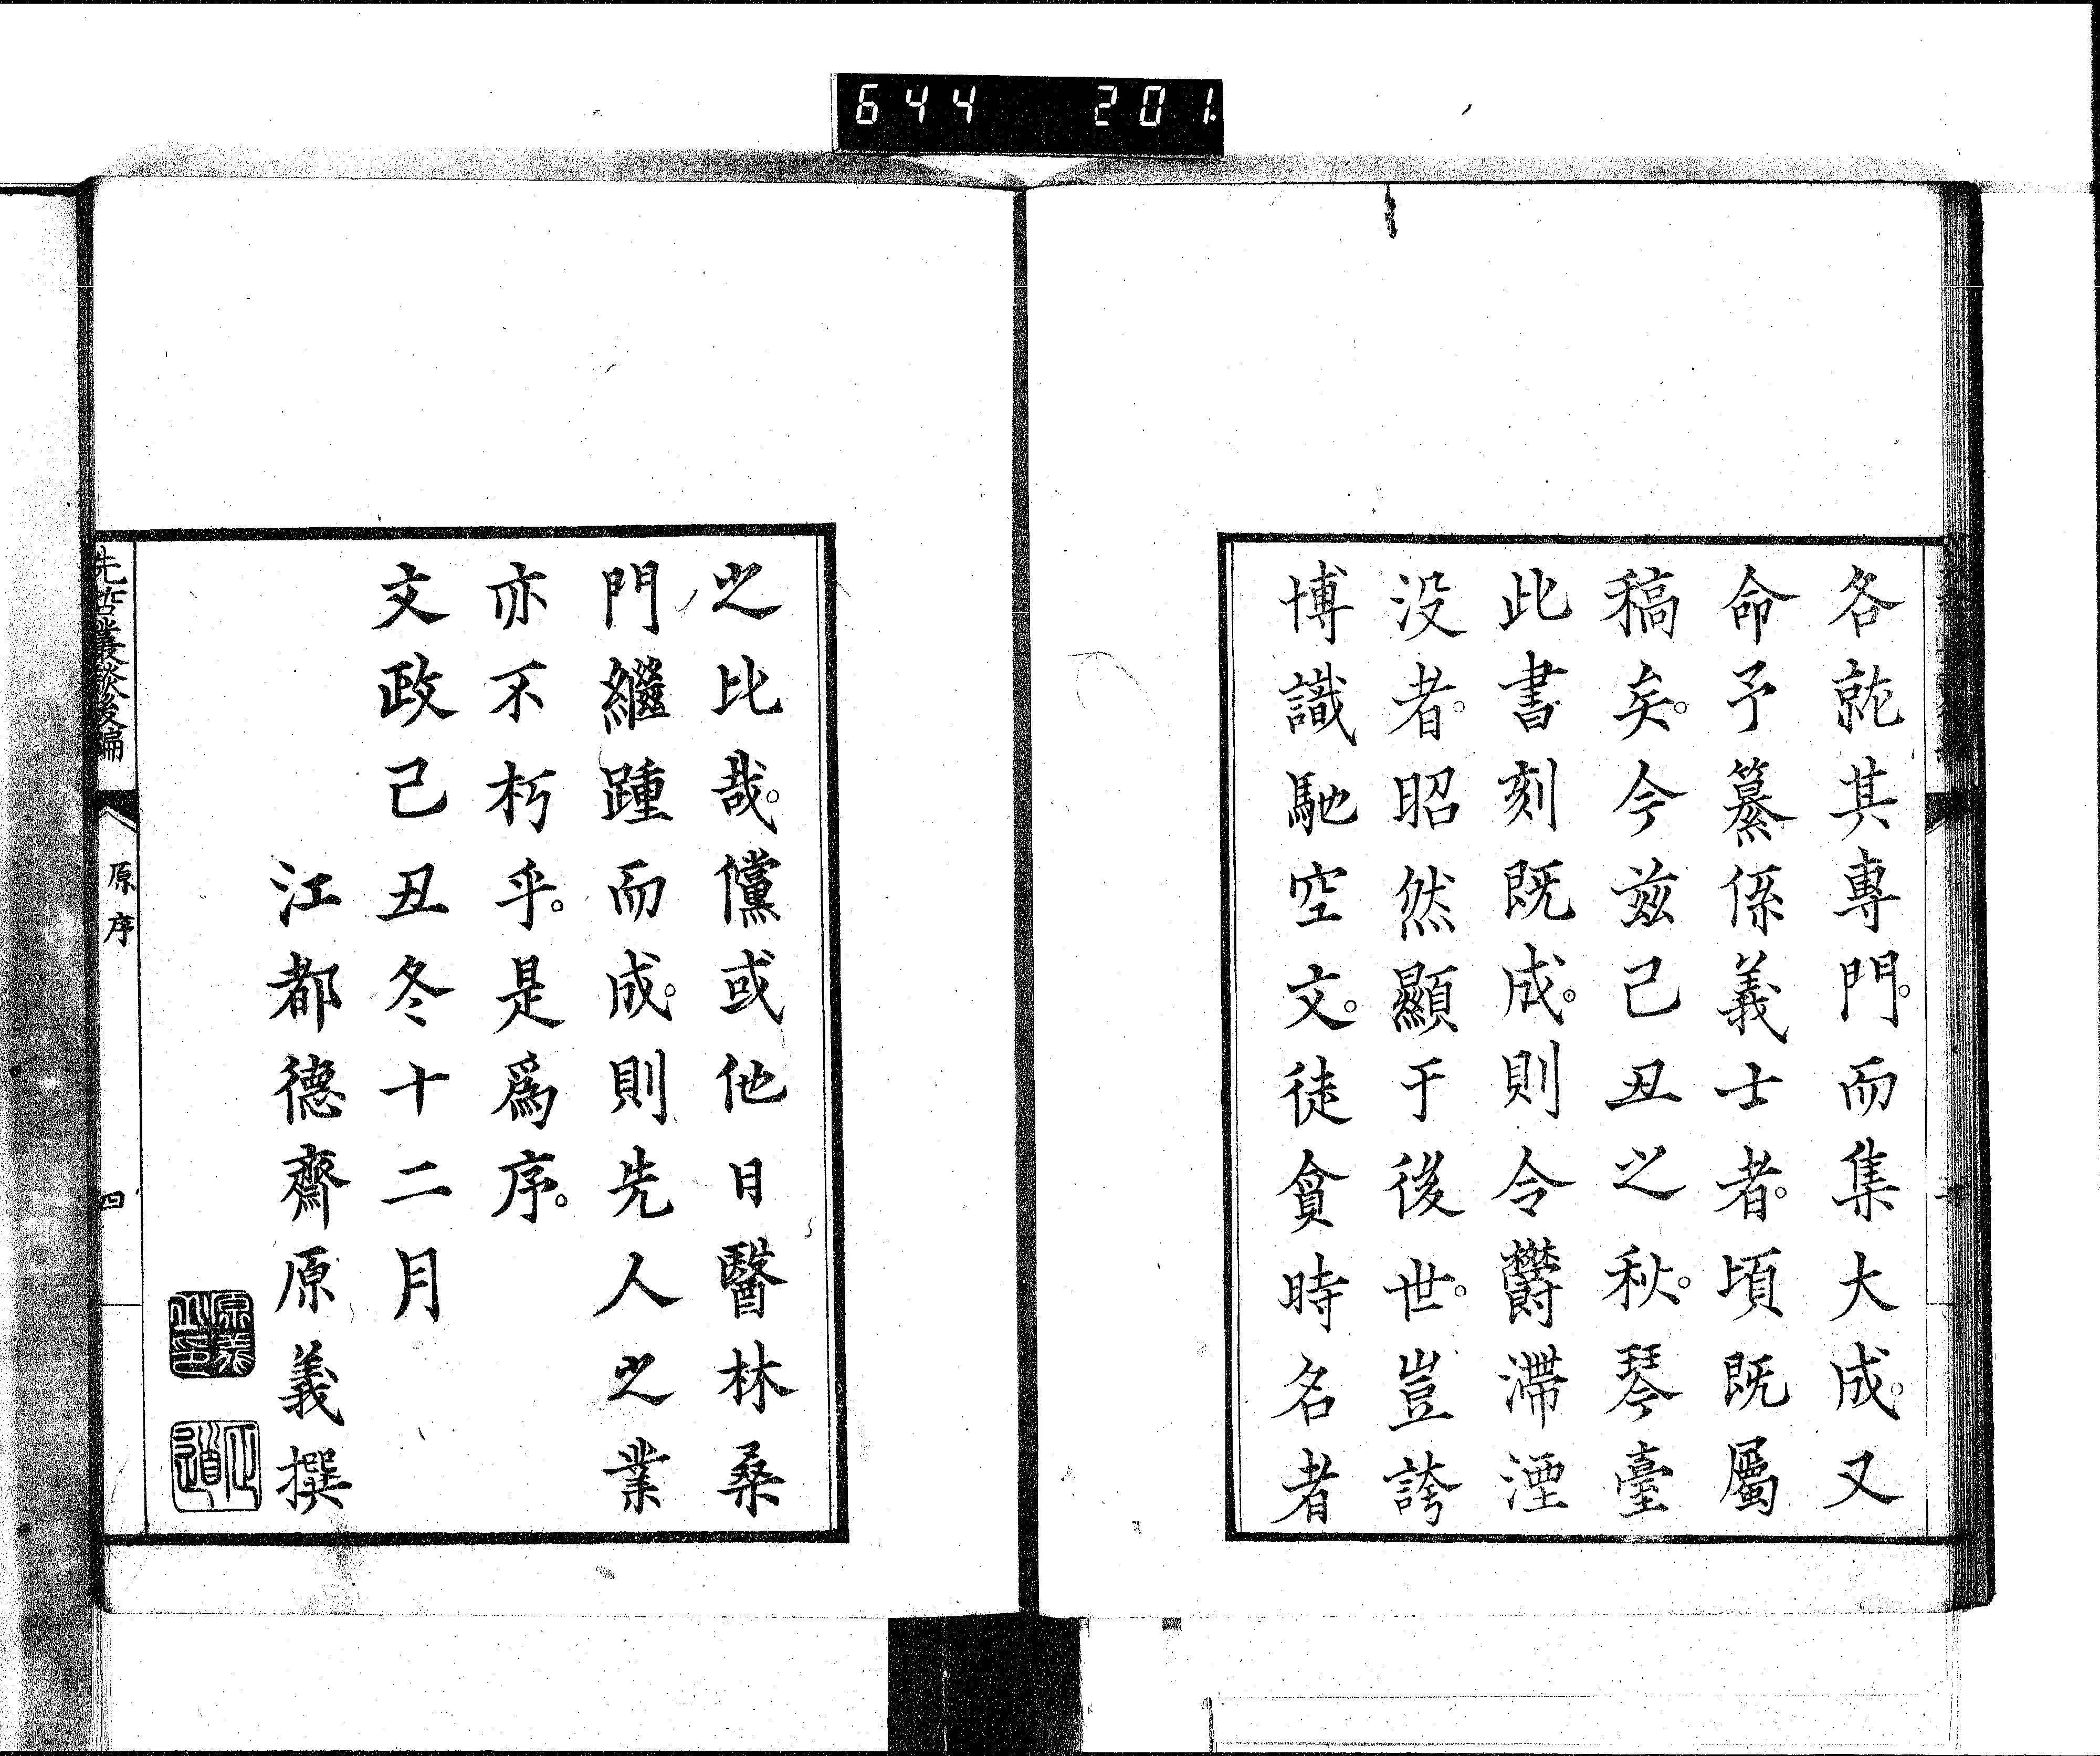 644 201
各就其專門。而集大成。又
命予纂係義士者。頃既屬
稿矣。今茲己丑之秋。琴臺
此書刻既成。則令欝滯湮
没者。昭然顯于後世。豈誇
博識馳空文。徒貪時名者
之比哉。儻或他日醫林桑
門繼踵而成。則先人之業
亦不朽乎。是爲序。
文政己丑冬十二月
江都德齋原義撰
先哲叢談後編
原序
四